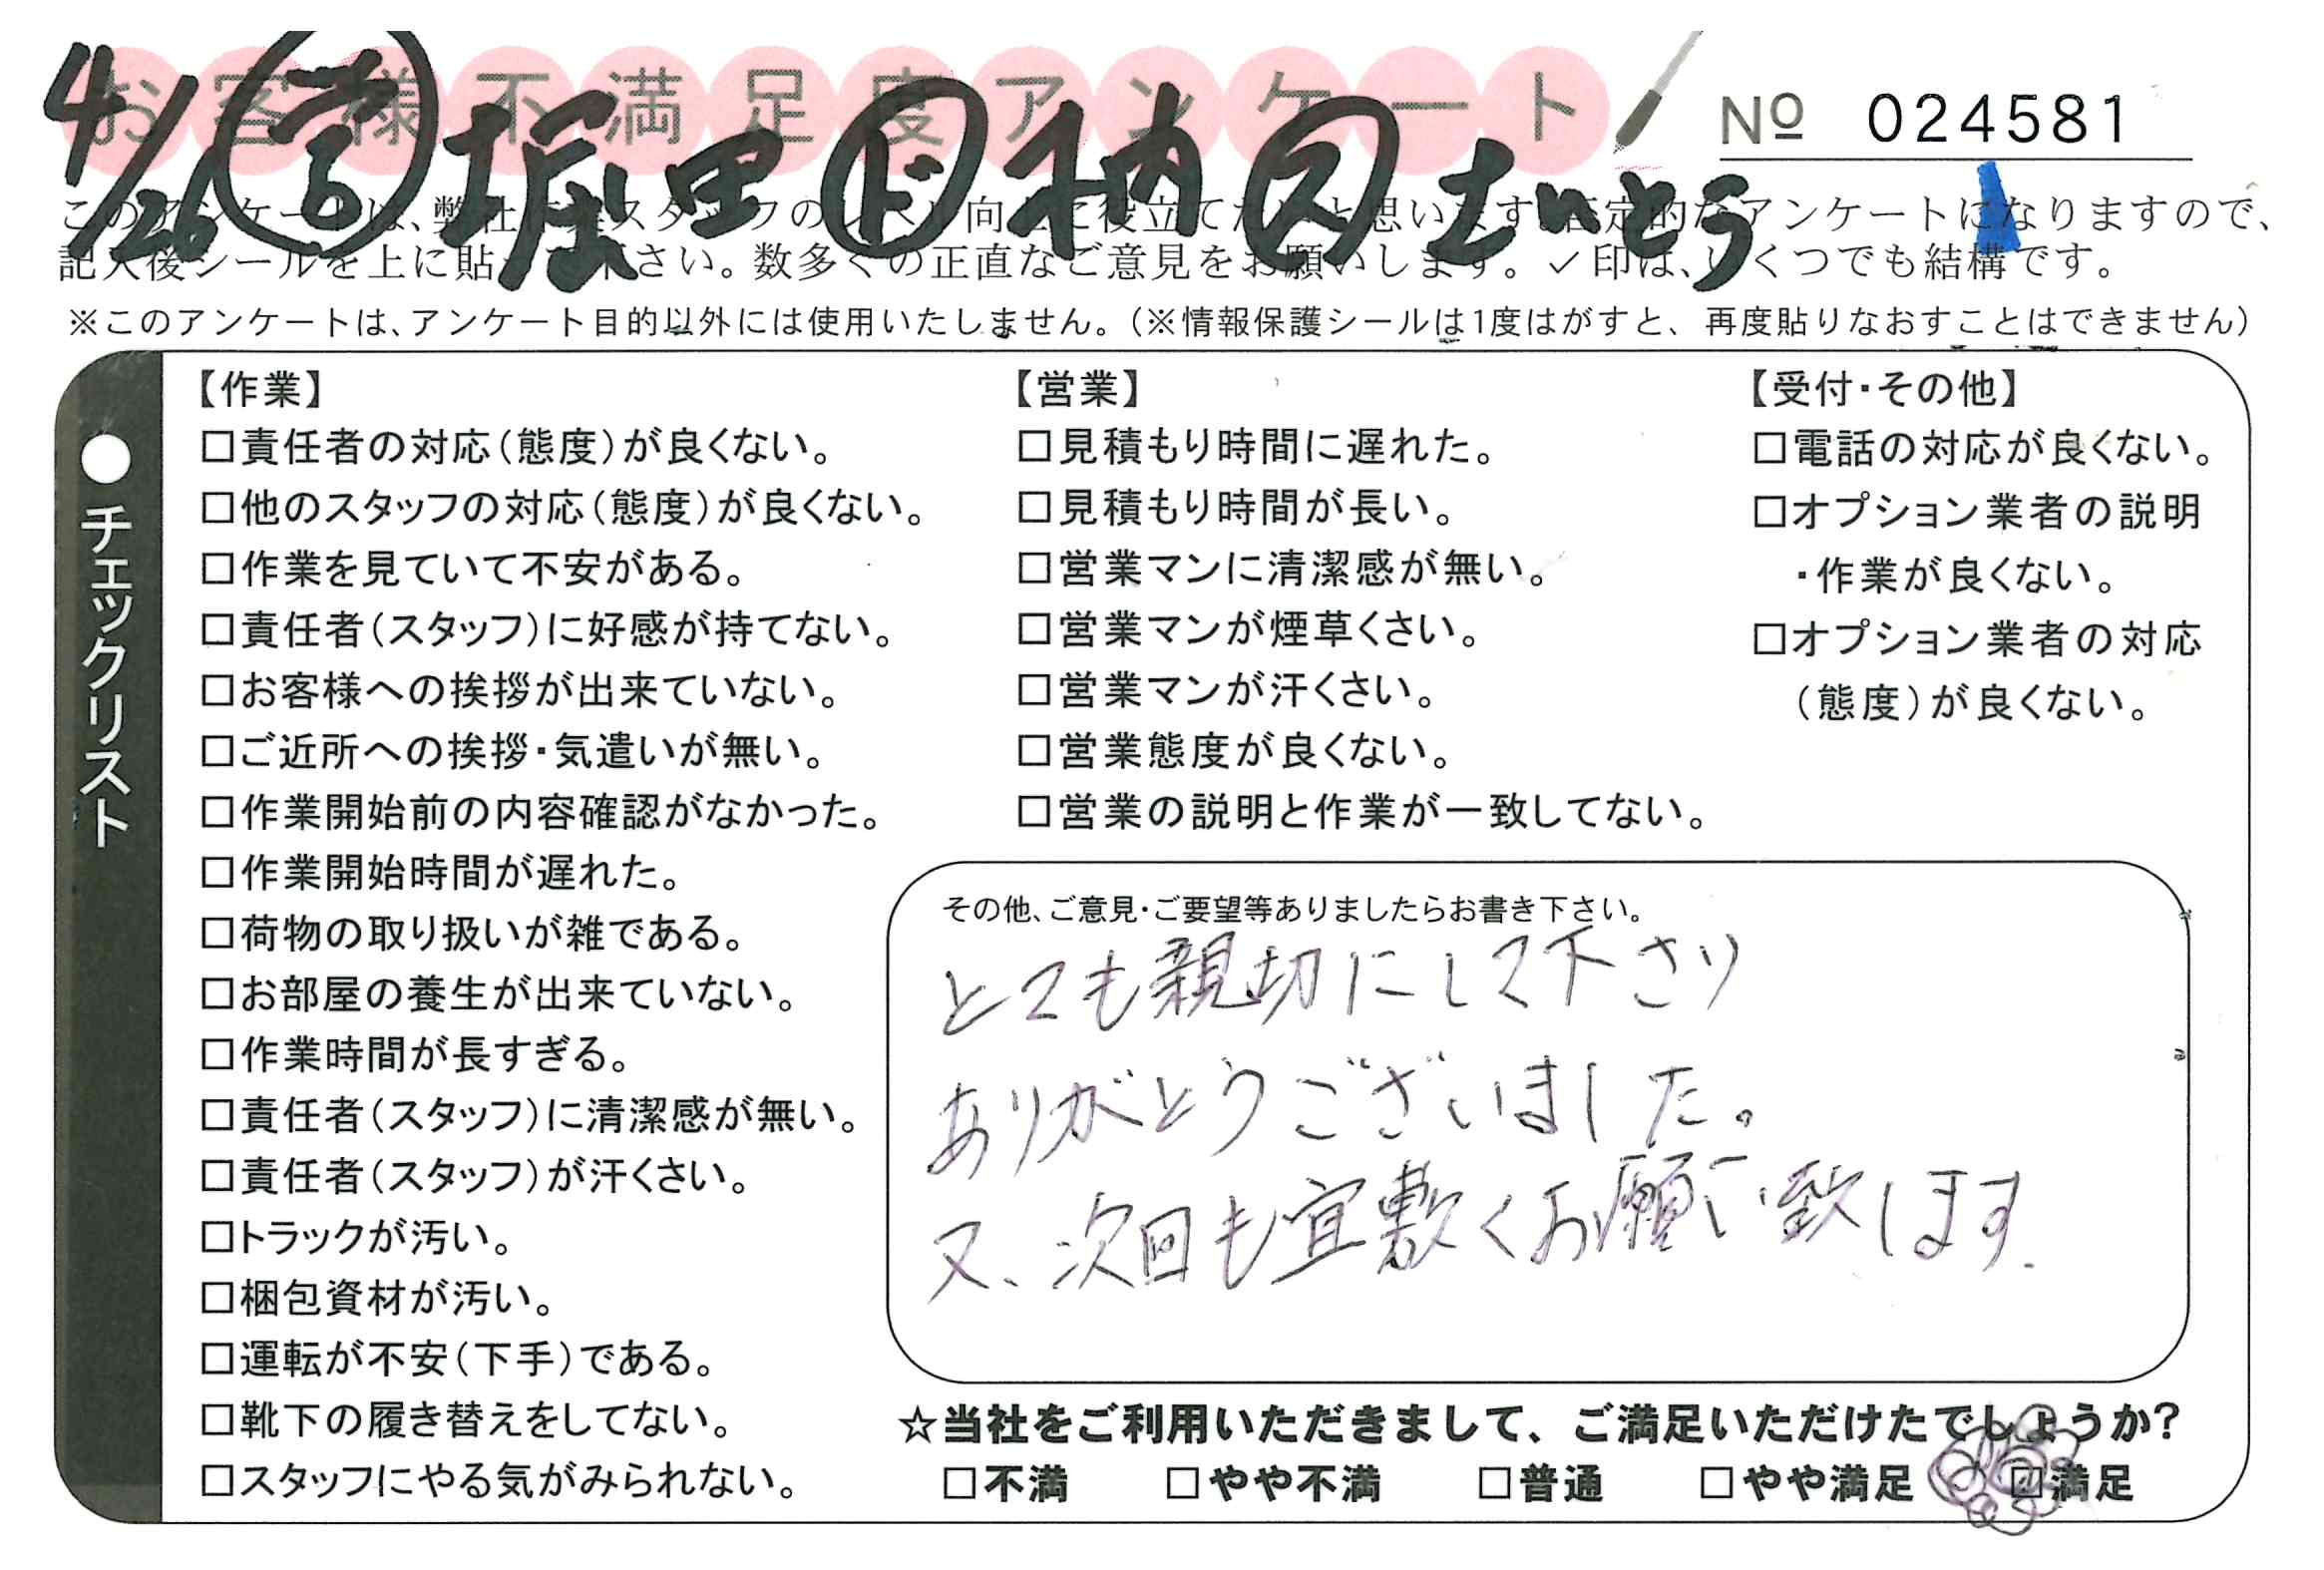 お客様不満足度アンケート
№ 024581
4/26 営 堀田 ド 柿内 ス さいとう
このアンケートは、弊社作業スタッフのレベル向上に役立てたいと思います。否定的なアンケートになりますので、
記入後シールを上に貼って下さい。数多くの正直なご意見をお願いします。✓印は、いくつでも結構です。
※このアンケートは、アンケート目的以外には使用いたしません。（※情報保護シールは1度はがすと、再度貼りなおすことはできません）
●チェックリスト
【作業】
□責任者の対応（態度）が良くない。
□他のスタッフの対応（態度）が良くない。
□作業を見ていて不安がある。
□責任者（スタッフ）に好感が持てない。
□お客様への挨拶が出来ていない。
□ご近所への挨拶・気遣いが無い。
□作業開始前の内容確認がなかった。
□作業開始時間が遅れた。
□荷物の取り扱いが雑である。
□お部屋の養生が出来ていない。
□作業時間が長すぎる。
□責任者（スタッフ）に清潔感が無い。
□責任者（スタッフ）が汗くさい。
□トラックが汚い。
□梱包資材が汚い。
□運転が不安（下手）である。
□靴下の履き替えをしてない。
□スタッフにやる気がみられない。
【営業】
□見積もり時間に遅れた。
□見積もり時間が長い。
□営業マンに清潔感が無い。
□営業マンが煙草くさい。
□営業マンが汗くさい。
□営業態度が良くない。
□営業の説明と作業が一致してない。
【受付・その他】
□電話の対応が良くない。
□オプション業者の説明
・作業が良くない。
□オプション業者の対応
（態度）が良くない。
その他、ご意見・ご要望等ありましたらお書き下さい。
とても親切にして下さり
ありがとうございました。
又、次回も宜敷くお願い致します.
☆当社をご利用いただきまして、ご満足いただけたでしょうか?
□不満 □やや不満 □普通 □やや満足 ☑満足